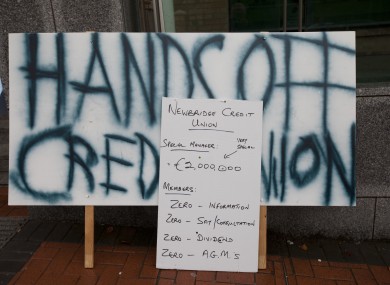 HANDS OFF
CREDIT UNION
NEWBRIDGE CREDIT
UNION
SPECIAL MANAGER:
VERY
SPECIAL
€2,000,000
MEMBERS:
ZERO - INFORMATION
ZERO - SAY/CONSULTATION
ZERO - DIVIDEND
ZERO - A.G.M.S